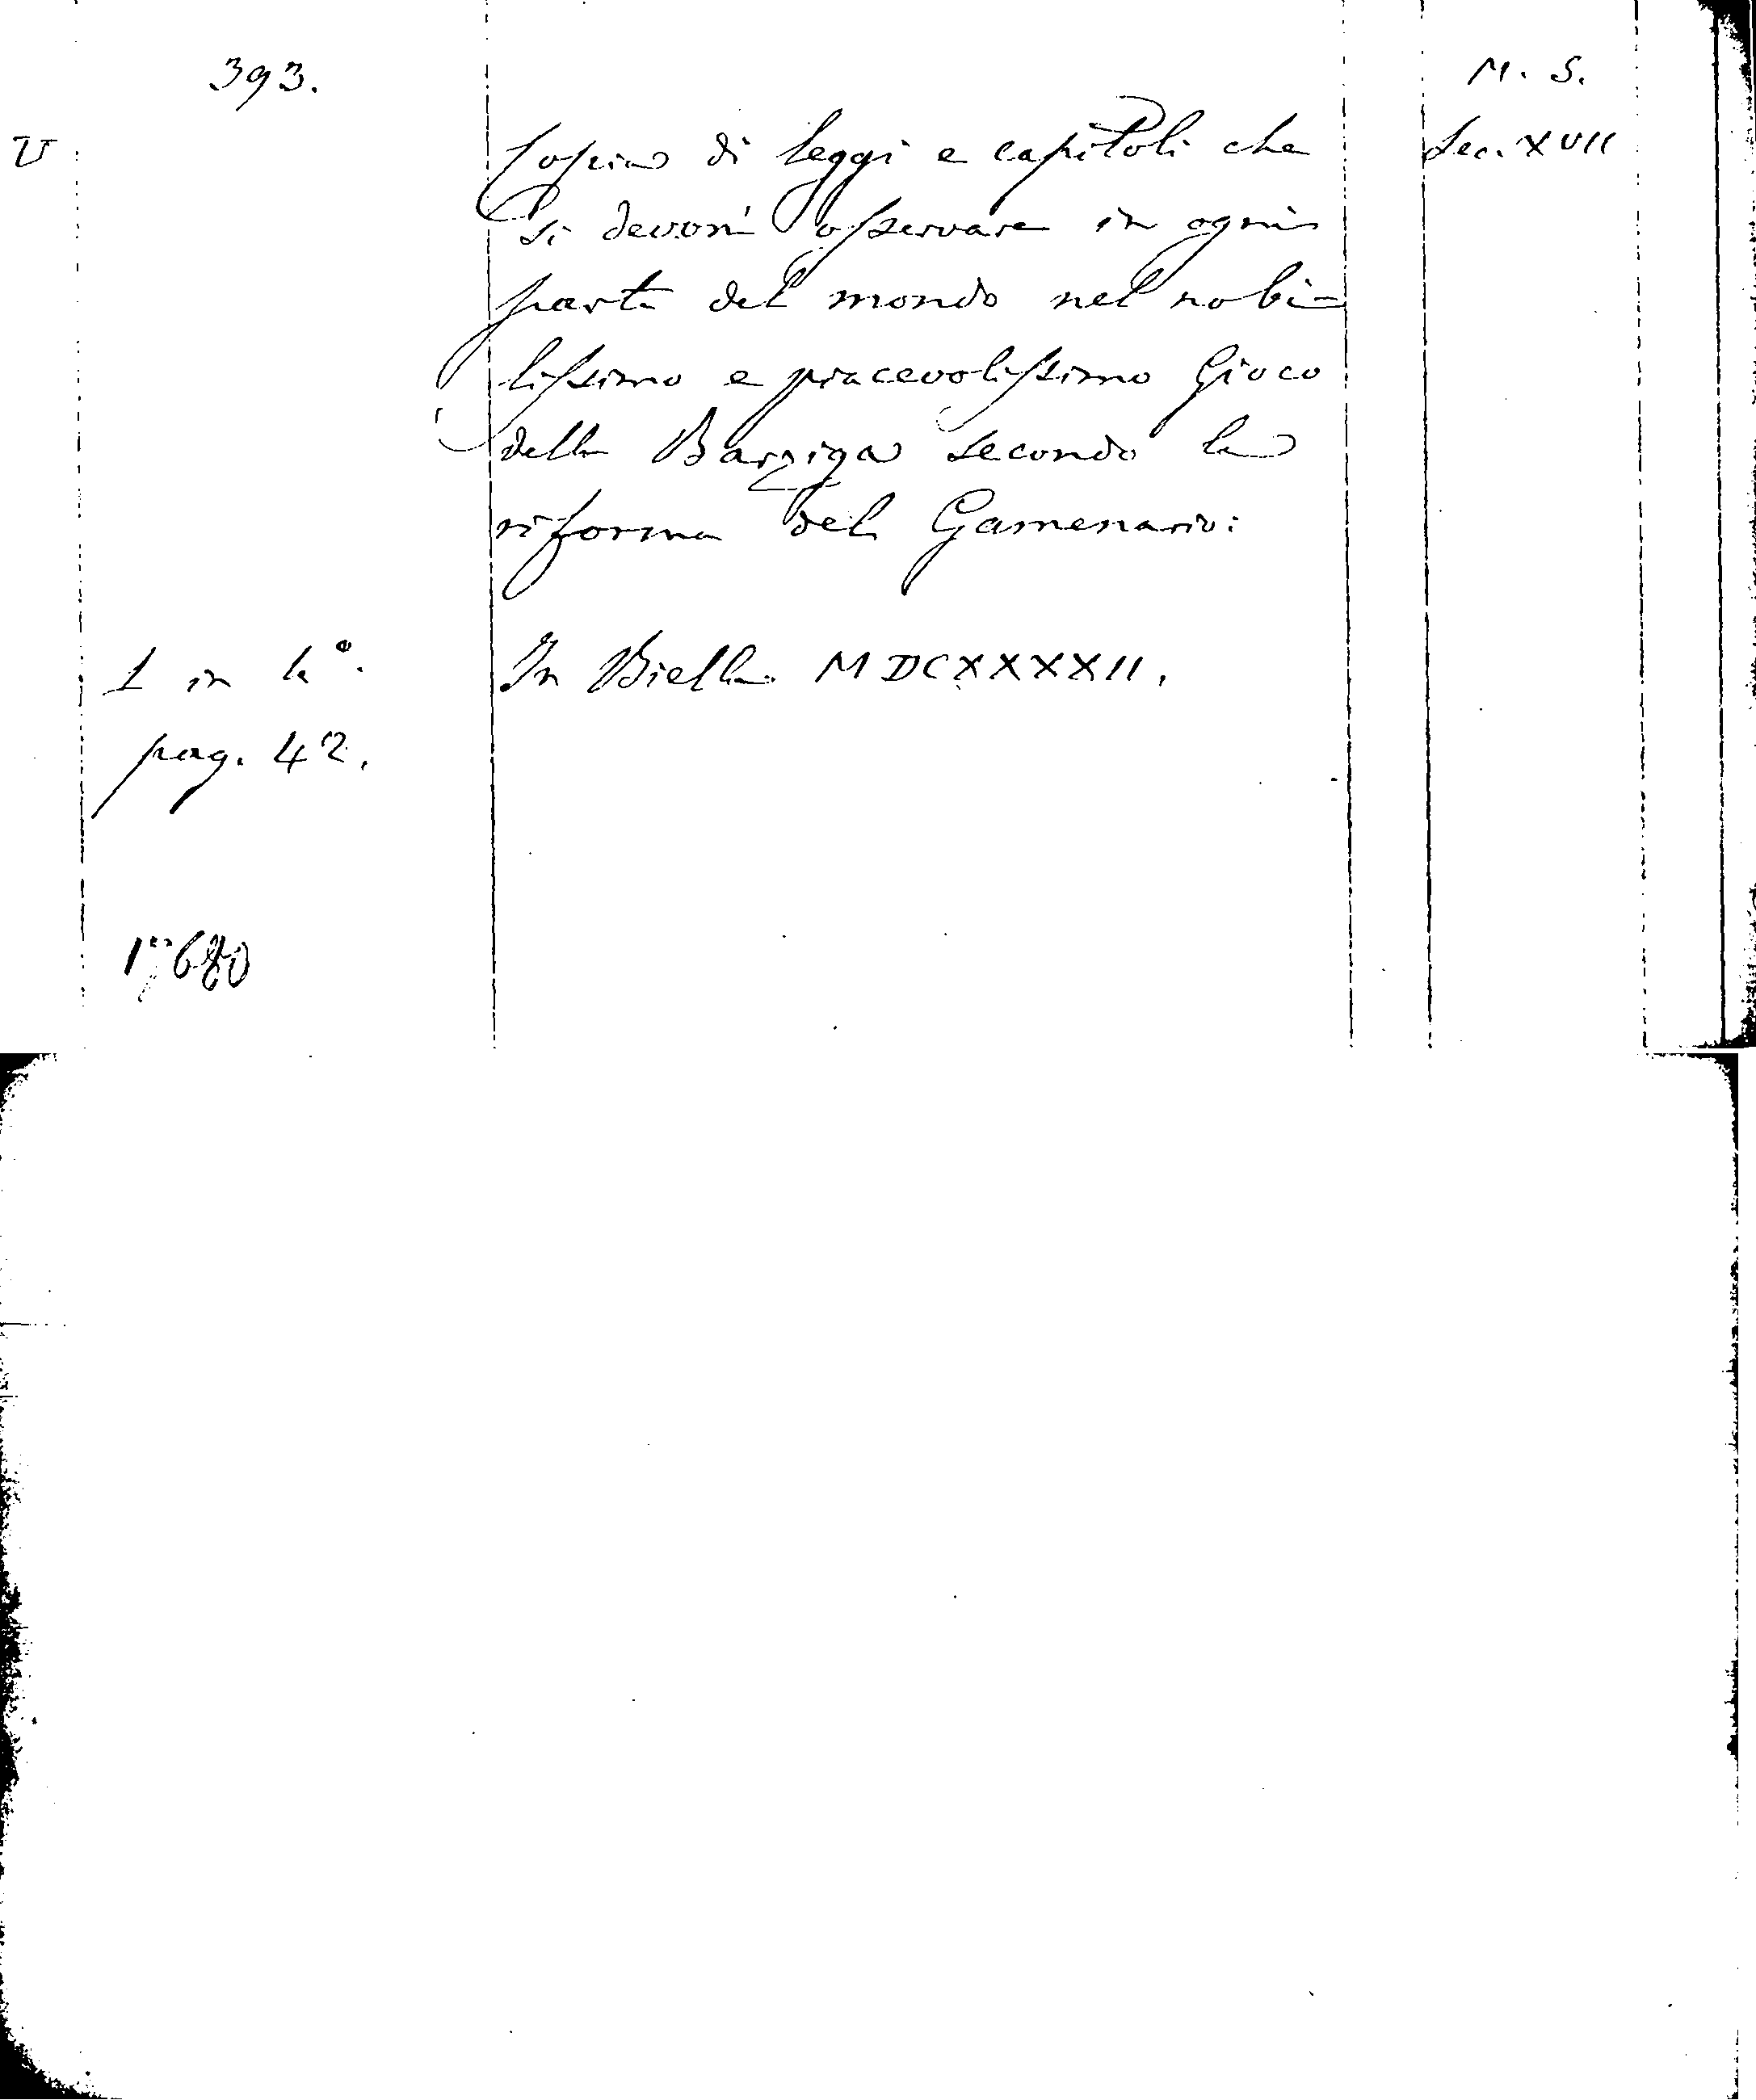 393.
M. S.
U
Copia di leggi e capitoli che
Sec. XVII
si devoni osservare in ogni
parte del mondo nel nobi-
lissimo e piacevolissimo Gioco
della Barziga secondo la
riforma del Gamenario:
1 in 4°.
In Biella MDCXXXXII.
pag. 42.